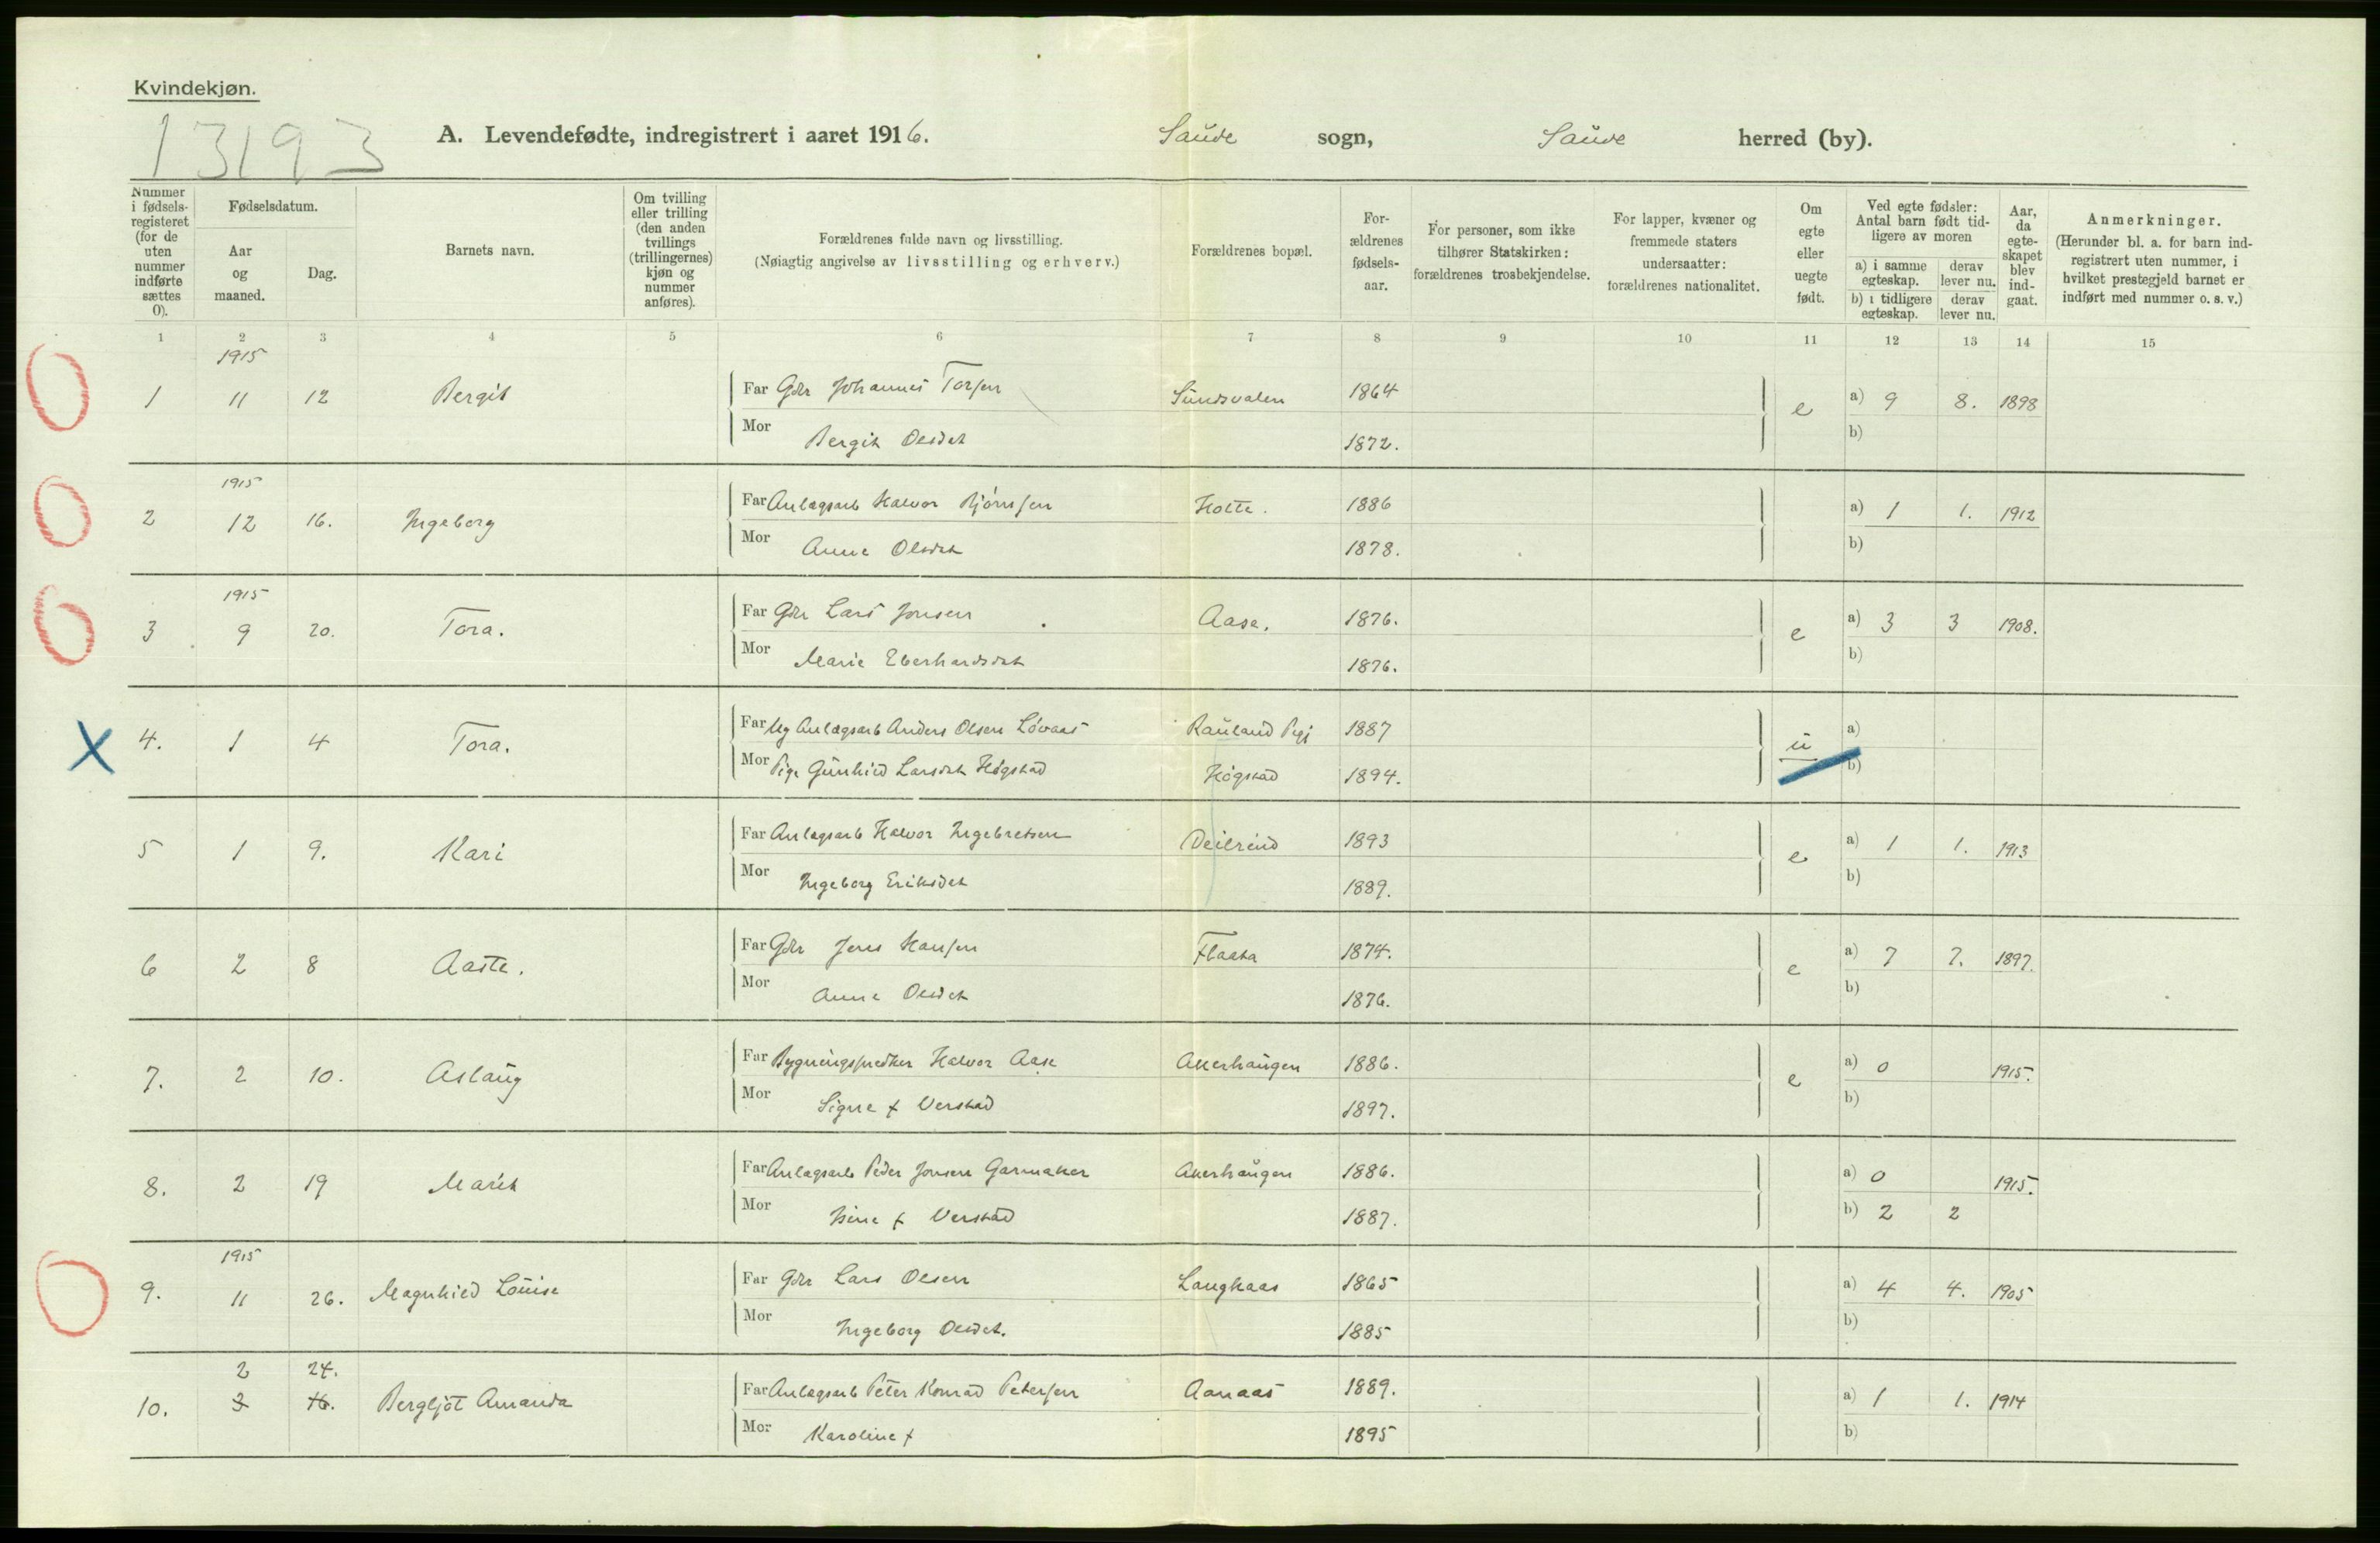 Kvindekjøn.
13193
A. Levendefødte, indregistrert i aaret 1916. Saude sogn, Saude herred (by).
Nummer i fødselsregisteret (for de uten nummer indførte sættes 0).
Fødselsdatum.
Aar og maaned.
Dag.
Barnets navn.
Om tvilling eller trilling (den anden tvillings (trillingernes) kjøn og nummer anføres).
Forældrenes fulde navn og livsstilling.
(Nøiagtig angivelse av livsstilling og erhverv.)
Forældrenes bopæl.
For-ældrenes fødsels-aar.
For personer, som ikke tilhører Statskirken: forældrenes trosbekjendelse.
For lapper, kvæner og fremmede staters undersaatter: forældrenes nationalitet.
Om egte eller uegte født.
Ved egte fødsler: Antal barn født tid-ligere av moren
a) i samme egteskap. derav lever nu.
b) i tidligere egteskap. derav lever nu.
Aar, da egte-skapet blev ind-gaat.
Anmerkninger.
(Herunder bl. a. for barn ind-registrert uten nummer, i hvilket prestegjeld barnet er indført med nummer o. s. v.)
1 2 3 4 5 6 7 8 9 10 11 12 13 14 15
1915
1 11 12 Bergit Far Gbr Johannes Torsen Sundsvalen 1864 e a) 9 8. 1898
Mor Bergit Olsdet 1872. b)
1915
2 12 16. Ingeborg Far Anlægsarb Halvor Bjørnsen Holte. 1886 a) 1 1. 1912
Mor Anne Olsdet 1878. b)
1915
3 9 20. Tora. Far Gbr Lars Jonsen Aase. 1876. e a) 3 3 1908.
Mor Marie Eberhardsdet 1876. b)
4. 1 4 Tora. Far Ug Anlægsarb Anders Olsen Løvaas Rauland Pgj 1887 u a)
Mor Pige Gunhild Larsdet Høgstad Høgstad 1894. b)
5 1 9. Kari Far Anlægsarb Halvor Ingebretsen Deilrind 1893 e a) 1 1. 1913
Mor Ingeborg Eriksdet 1889. b)
6 2 8 Aaste. Far Gbr Jens Hansen Flaata 1874. e a) 7 7. 1897.
Mor Anne Olsdet 1876. b)
7. 2 10. Aslaug Far Bygningssnedker Halvor Aase Akerhaugen 1886. e a) 0 1915.
Mor Signe f Verstad 1897. b)
8. 2 19 Marit Far Anlægsarb Peder Jonsen Garmaker Akerhaugen 1886. a) 0 1915.
Mor f Verstad 1887. b) 2 2
1915
9. 11 26. Magnhild Louise Far Gbr Lars Olsen Langkaas 1865 a) 4 4. 1905
Mor Ingeborg Olsdet. 1885 b)
2 24.
10. 3 16. Bergljot Amanda Far Anlægsarb Peter Konrad Petersen Aanaas 1889. a) 1 1. 1914
Mor Karoline f 1895 b)